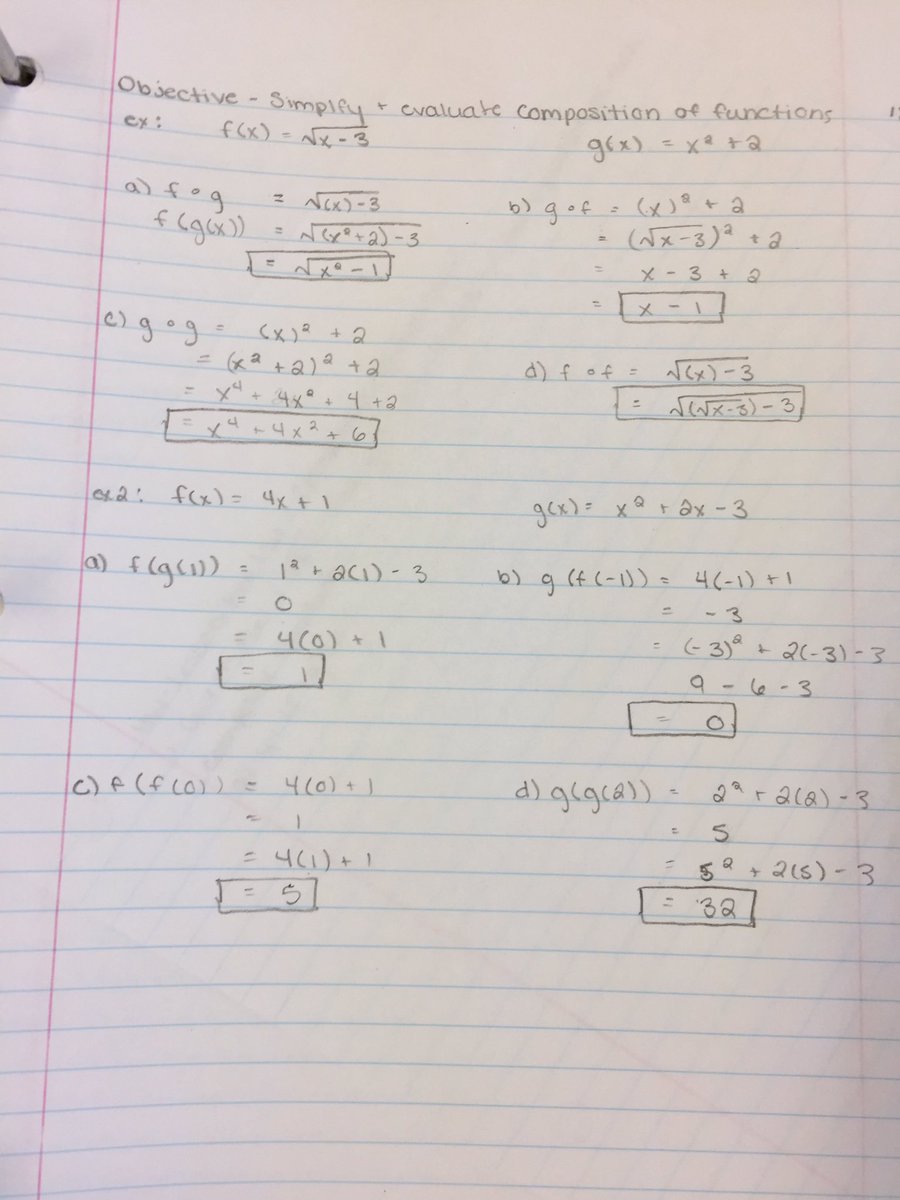 Objective - Simplfy + evaluate composition of functions
ex: f(x) = √x - 3 g(x) = x² + 2
a) f ∘ g = √(x) - 3
f(g(x)) = √(x² + 2) - 3
= √x² - 1
b) g ∘ f = (x)² + 2
= (√x - 3)² + 2
= x - 3 + 2
= x - 1
c) g ∘ g = (x)² + 2
= (x² + 2)² + 2
= x⁴ + 4x² + 4 + 2
= x⁴ + 4x² + 6
d) f ∘ f = √(x) - 3
= √(√x - 3) - 3
ex2: f(x) = 4x + 1 g(x) = x² + 2x - 3
a) f(g(1)) = 1² + 2(1) - 3
= 0
= 4(0) + 1
= 1
b) g(f(-1)) = 4(-1) + 1
= -3
= (-3)² + 2(-3) - 3
9 - 6 - 3
= 0
c) f(f(0)) = 4(0) + 1
= 1
= 4(1) + 1
= 5
d) g(g(2)) = 2² + 2(2) - 3
= 5
= 5² + 2(5) - 3
= 32